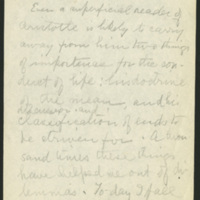 Even a superficial reader of
Aristotle is likely to carry
away from him two things
of importance for the con-
duct of life: his doctrine
of the mean, and his
classification of ends to
be striven for. A thou-
sand times these things
have helped me out of di-
lemmas. To day I face